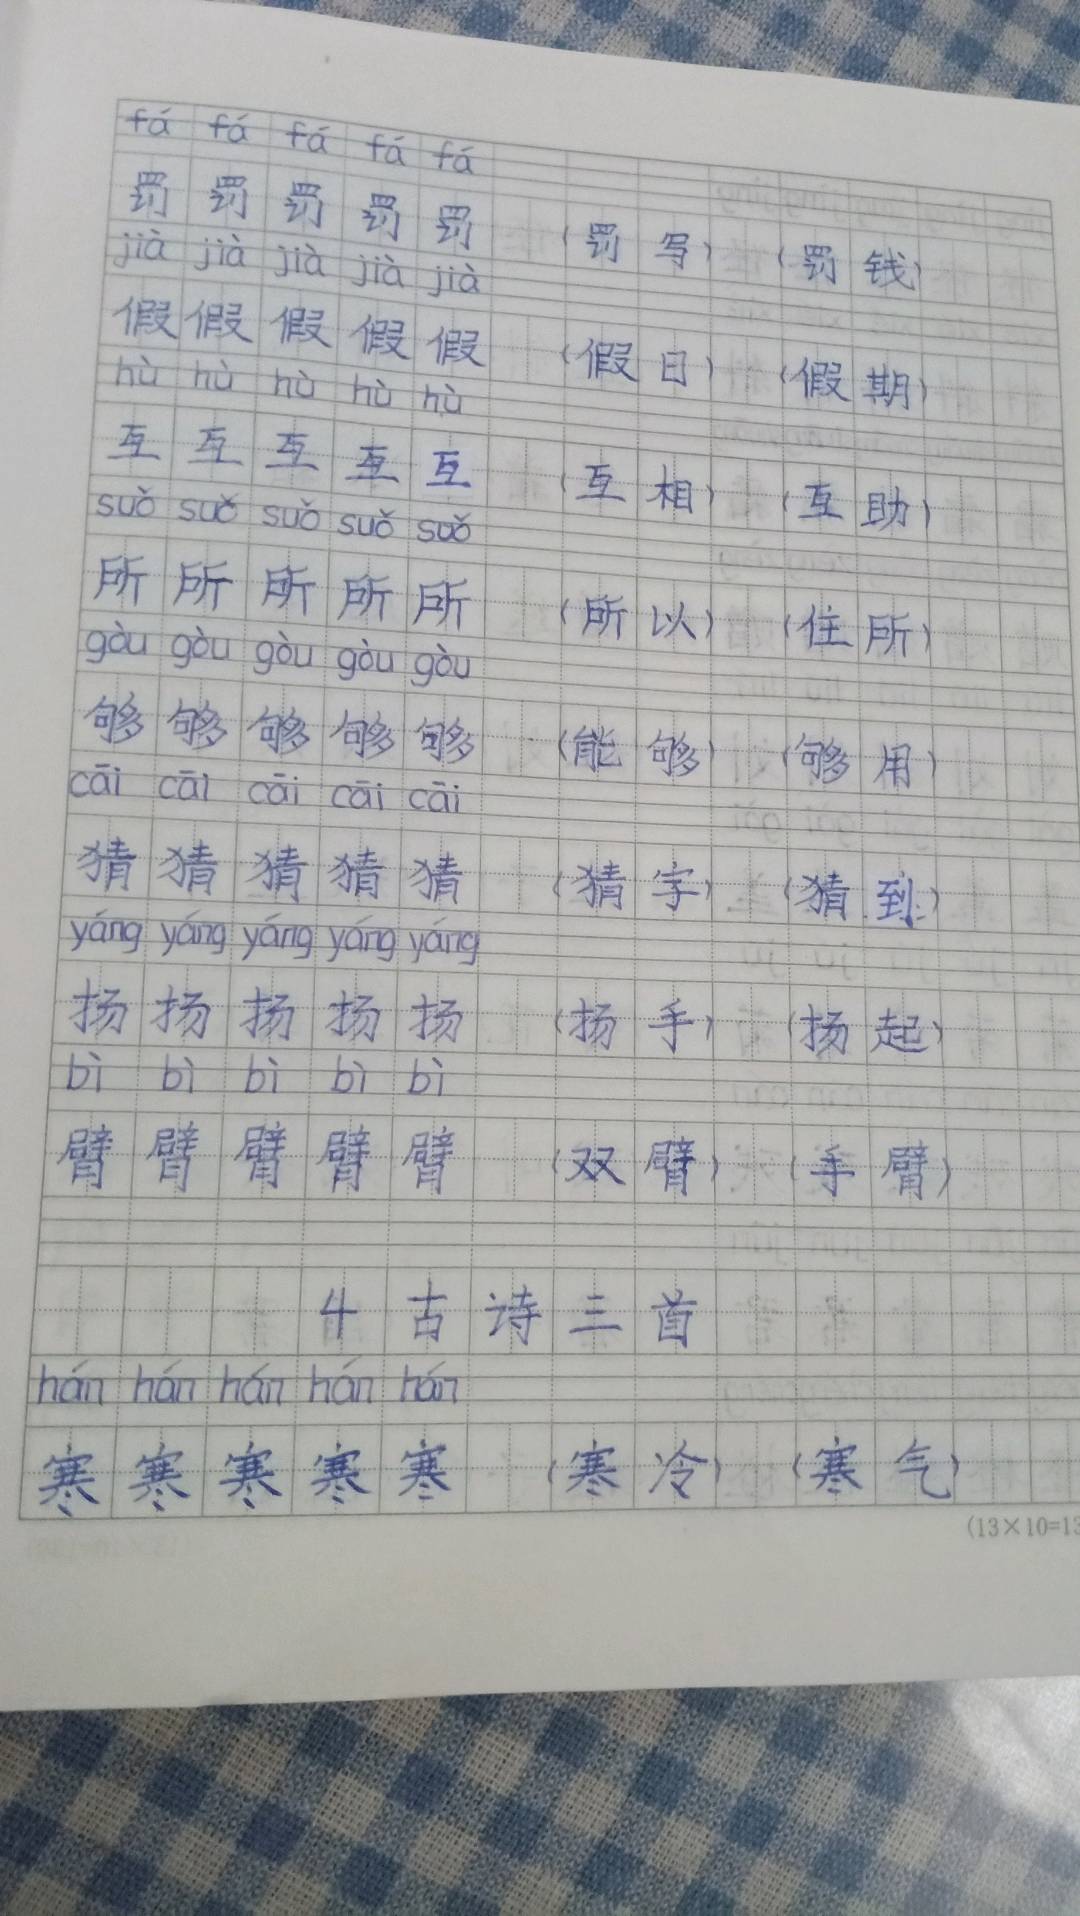 fá fá fá fá fá
罚 罚 罚 罚 罚 (罚写) (罚钱)
jià jià jià jià jià
假 假 假 假 假 (假日) (假期)
hù hù hù hù hù
互 互 互 互 互 (互相) (互助)
suǒ suǒ suǒ suǒ suǒ
所 所 所 所 所 (所以) (住所)
gòu gòu gòu gòu gòu
够 够 够 够 够 (能够) (够用)
cāi cāi cāi cāi cāi
猜 猜 猜 猜 猜 (猜字) (猜到)
yáng yáng yáng yáng yáng
扬 扬 扬 扬 扬 (扬手) (扬起)
bì bì bì bì bì
臂 臂 臂 臂 臂 (双臂) (手臂)
4 古诗三首
hán hán hán hán hán
寒 寒 寒 寒 寒 (寒冷) (寒气)
(13×10=13